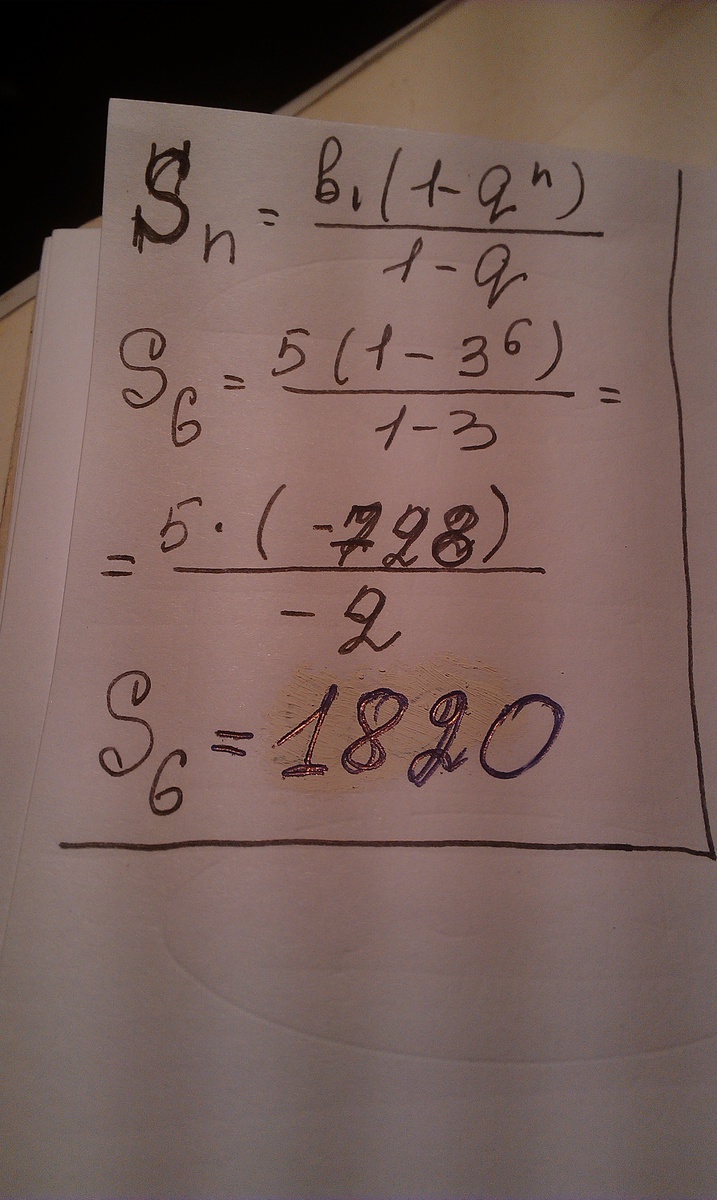 Sₙ = b₁(1-qⁿ) / 1-q
S₆ = 5(1-3⁶) / 1-3 =
= 5·(-728) / -2
S₆ = 1820